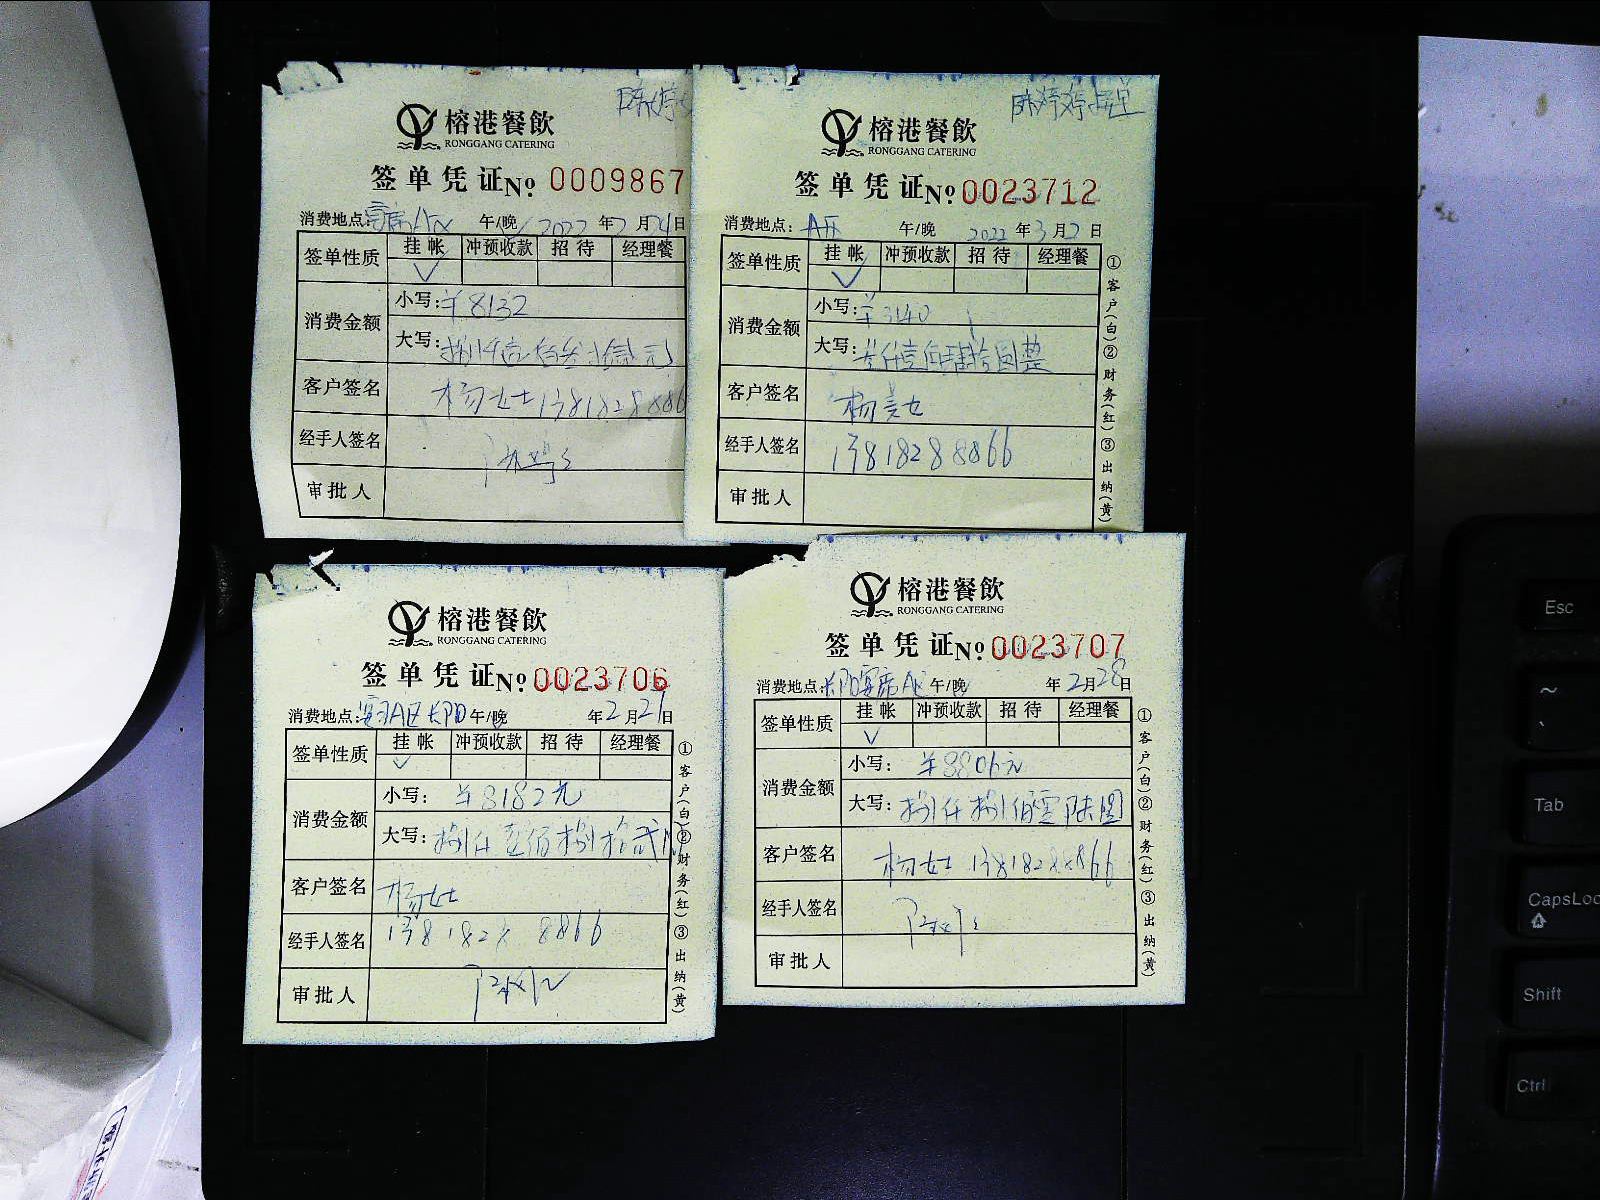 榕港餐飲
RONGGANG CATERING
签单凭证 No 0009867
消费地点: 午/晚 2022 年 2 月 24 日
签单性质 挂帐 冲预收款 招待 经理餐
✓
消费金额
小写: ¥8132
大写: 捌仟壹佰叁拾 元
客户签名 杨女士 1381828886
经手人签名
审批人
陈婷婷
榕港餐飲
RONGGANG CATERING
签单凭证 No 0023712
消费地点: A区 午/晚 2022 年 3 月 2 日
签单性质 挂帐 冲预收款 招待 经理餐
✓
消费金额
小写: ¥3140
大写: 叁仟壹佰肆拾圆整
客户签名 杨美女
经手人签名 13818288866
审批人
①客户(白)②财务(红)③出纳(黄)
榕港餐飲
RONGGANG CATERING
签单凭证 No 0023706
消费地点: 宴席A区长阳 午/晚 年 2 月 27 日
签单性质 挂帐 冲预收款 招待 经理餐
✓
消费金额
小写: ¥8182元
大写: 捌仟壹佰捌拾贰
客户签名 杨女士
经手人签名 13818288866
审批人
①客户(白)②财务(红)③出纳(黄)
榕港餐飲
RONGGANG CATERING
签单凭证 No 0023707
消费地点: 长阳宴席A区 午/晚 年 2 月 28 日
签单性质 挂帐 冲预收款 招待 经理餐
✓
消费金额
小写: ¥8806元
大写: 捌仟捌佰零陆圆
客户签名 杨女士 13818288866
经手人签名
审批人
①客户(白)②财务(红)③出纳(黄)
Esc
~
`
Tab
CapsLoc
Shift
Ctrl